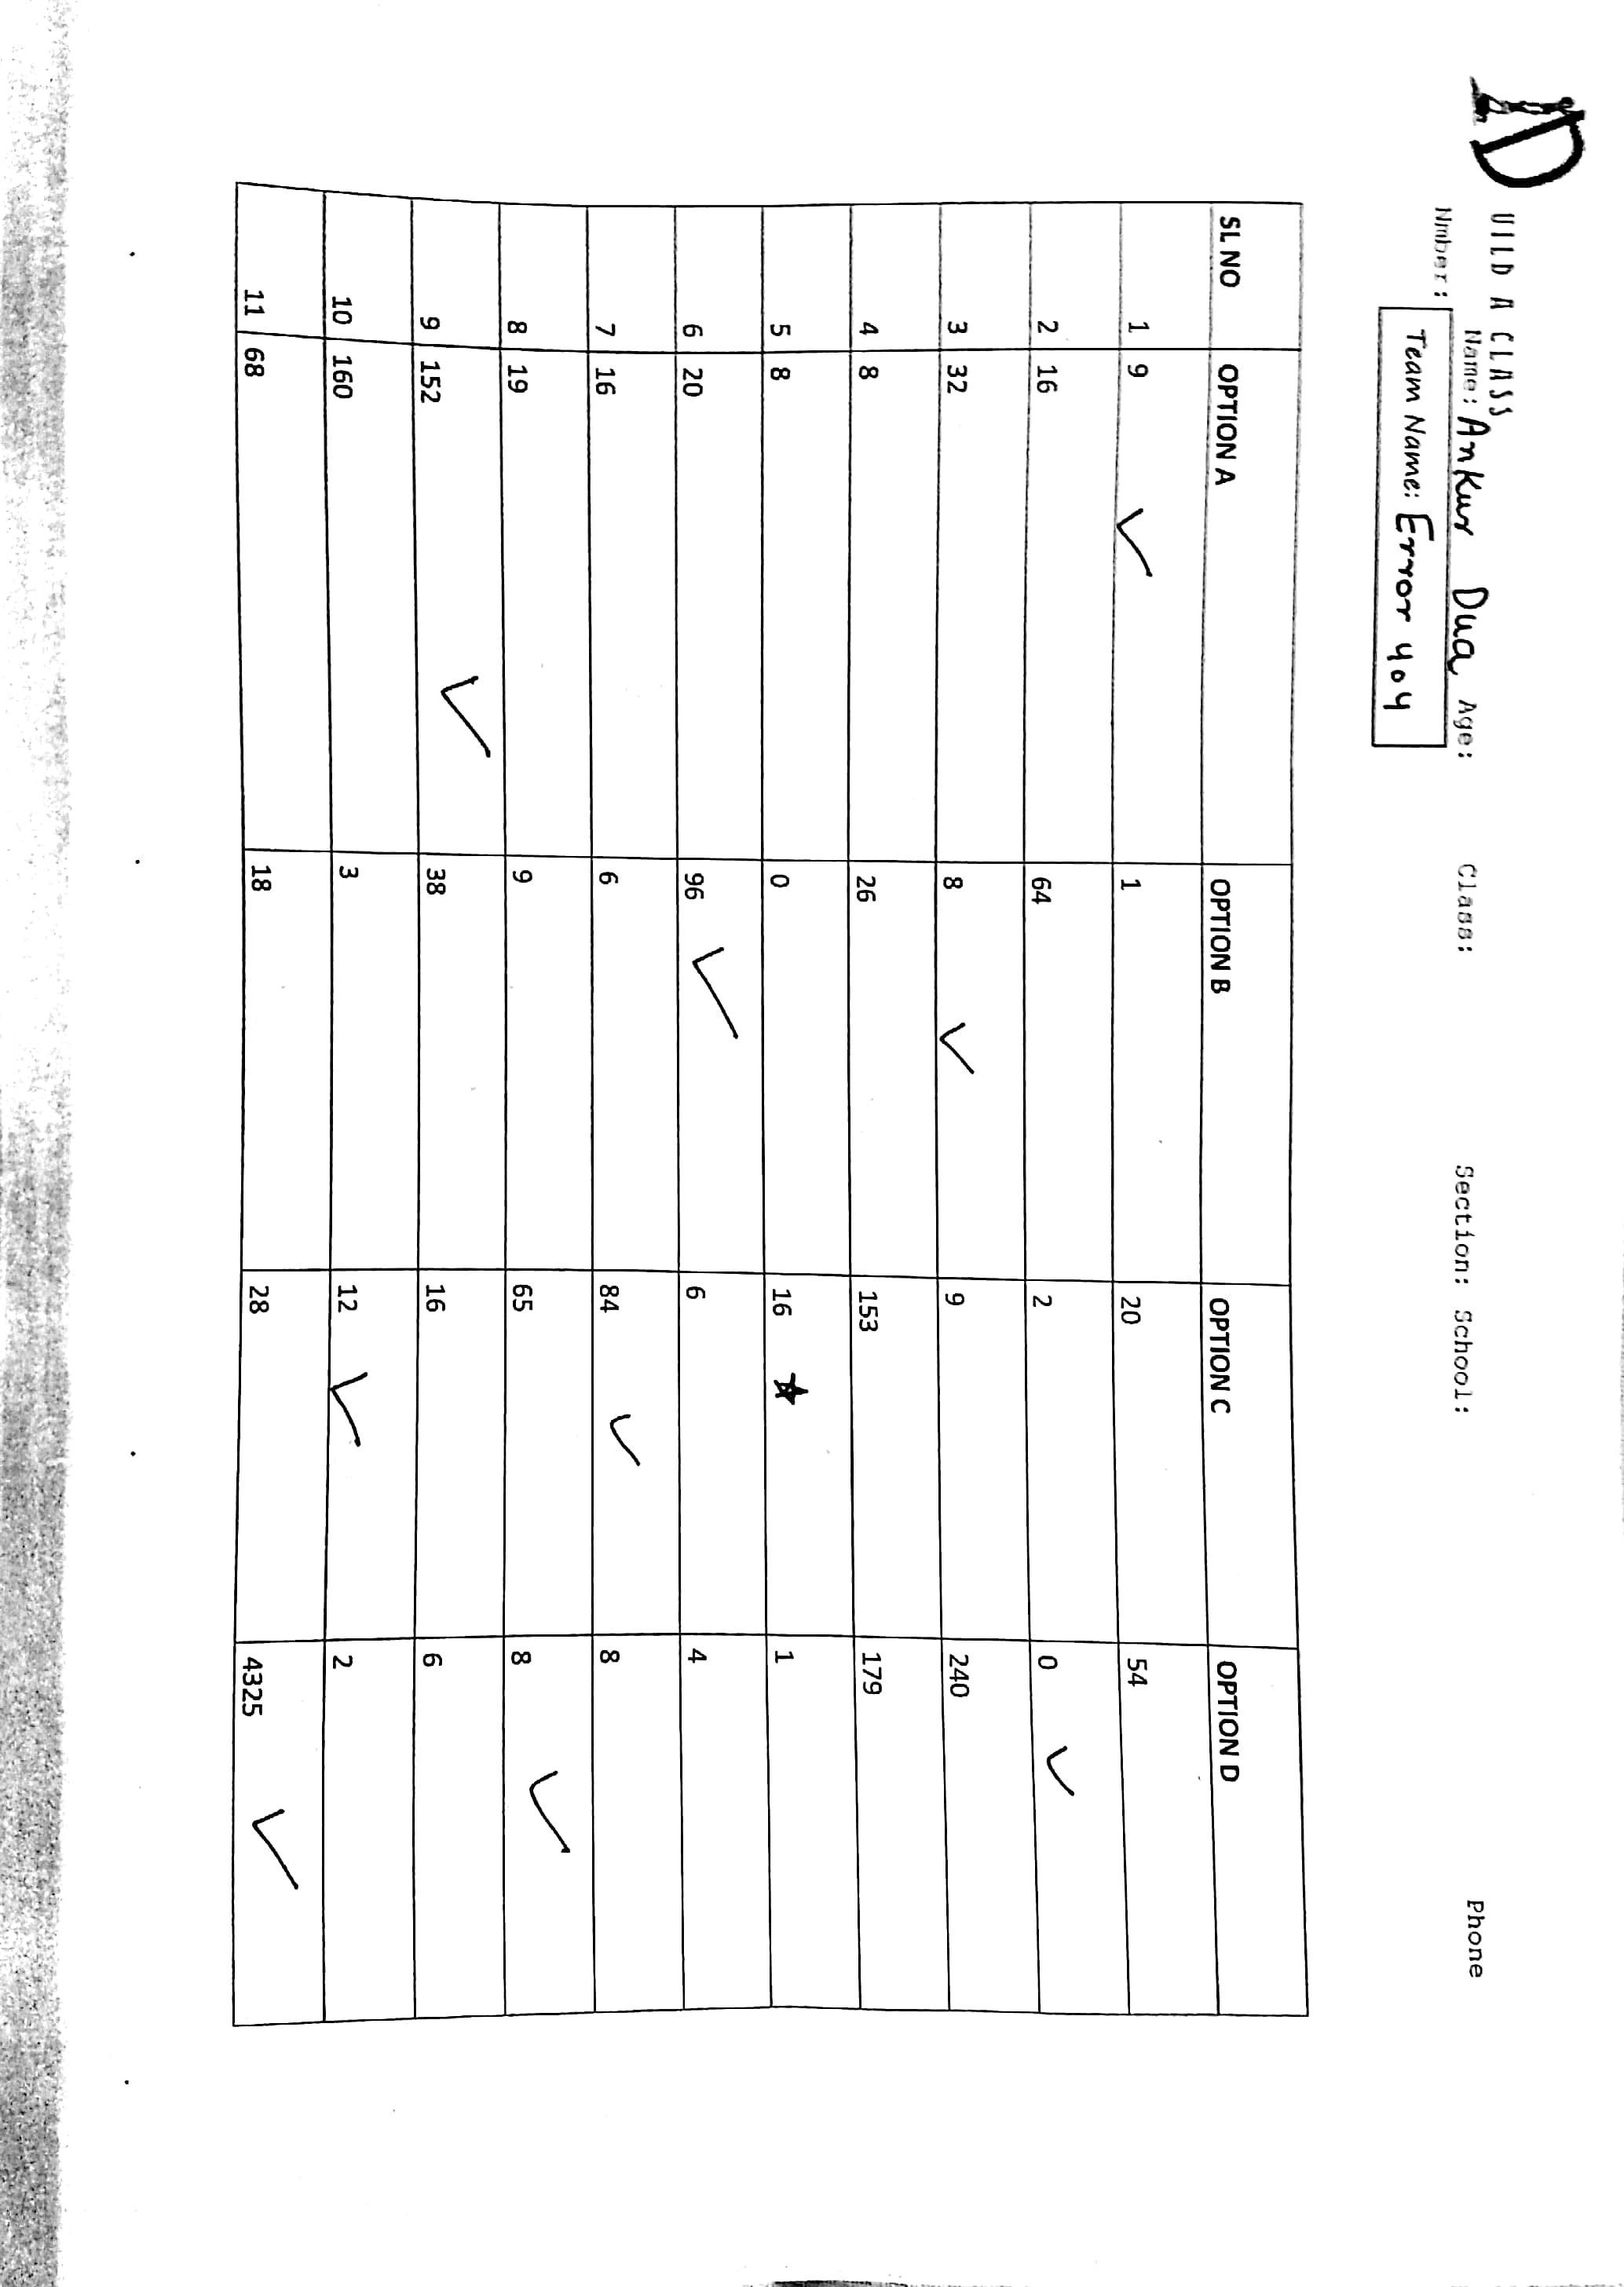 UILD A CLASS
Name: Ankur Dua Age: Class: Section: School: Phone
Nmber:
Team Name: Error 404
SL NO OPTION A OPTION B OPTION C OPTION D
1 9 ✓ 1 20 54
2 16 64 2 0 ✓
3 32 8 ✓ 9 240
4 8 26 153 179
5 8 0 16 ★ 1
6 20 96 ✓ 6 4
7 16 6 84 ✓ 8
8 19 9 65 8 ✓
9 152 ✓ 38 16 6
10 160 3 12 ✓ 2
11 68 18 28 4325 ✓